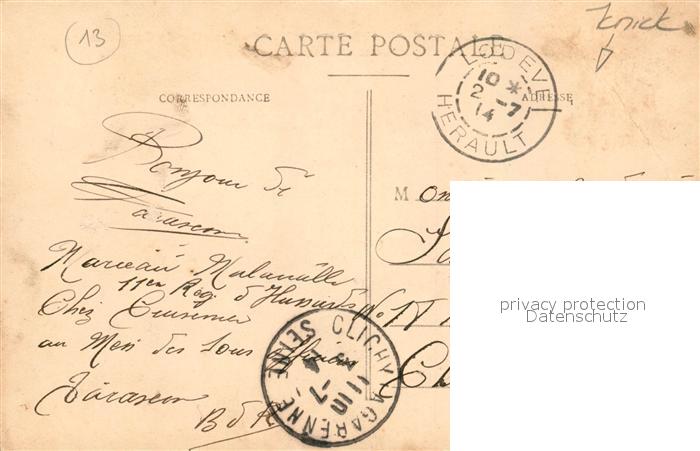 13
knick
CARTE POSTALE
LODEVE
10 *
2 - 7
14
HERAULT
CORRESPONDANCE
ADRESSE
Bonjour de
Tarascon
M on
Marceau
11em Reg d'Hussards No 11
Chez Cuisinier
au Mess des Sous officiers
Tarascon
B d R
CLICHY
LA GARENNE - SEINE
7
14
privacy protection
Datenschutz